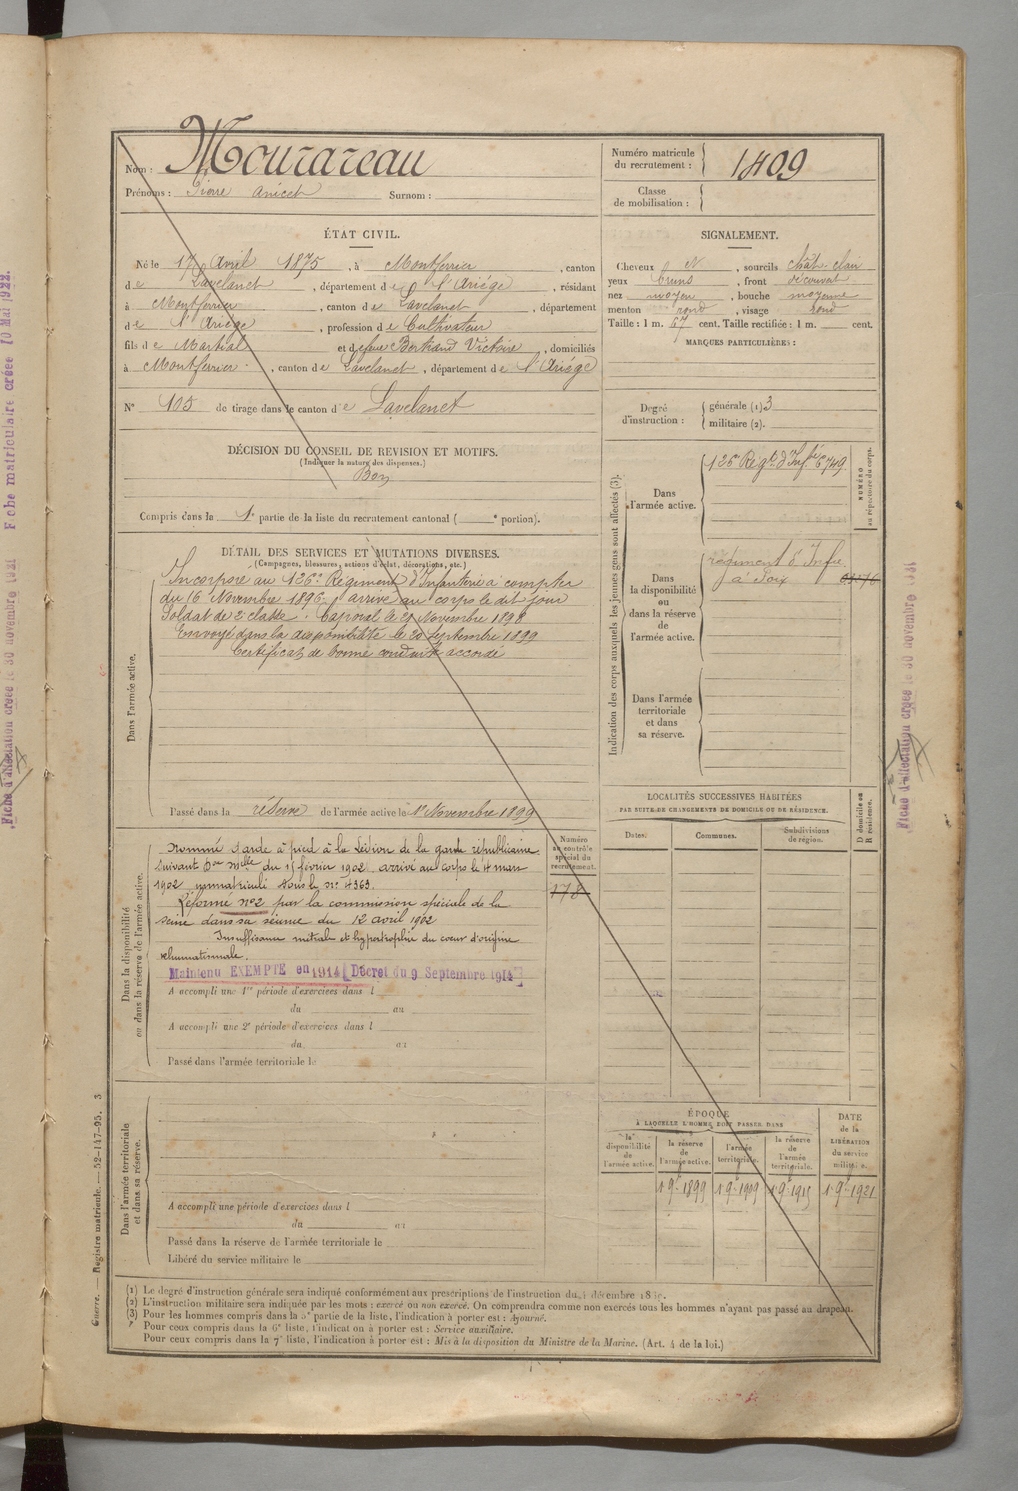 Nom : Mourareau
Prénoms : Pierre Anicet Surnom :
Numéro matricule du recrutement : 1409
Classe de mobilisation :
ÉTAT CIVIL.
Né le 17 Avril 1875, à Montferrier, canton
de Lavelanet, département de l'Ariége, résidant
à Montferrier, canton de Lavelanet, département
de l'Ariége, profession de Cultivateur
fils de Martial et de feue Bertrand Victoire, domiciliés
à Montferrier, canton de Lavelanet, département de l'Ariége
N° 105 de tirage dans le canton de Lavelanet
SIGNALEMENT.
Cheveux N, sourcils chât-clair
yeux bruns, front découvert
nez moyen, bouche moyenne
menton rond, visage rond
Taille : 1 m. 67 cent. Taille rectifiée : 1 m. cent.
MARQUES PARTICULIÈRES :
Degré d'instruction : générale (1) 3
militaire (2).
DÉCISION DU CONSEIL DE REVISION ET MOTIFS.
(Indiquer la nature des dispenses.)
Bon
Compris dans la 1e partie de la liste du recrutement cantonal ( e portion).
Indication des corps auxquels les jeunes gens sont affectés (3).
Dans l'armée active.
126e Régt d'Infie 6749
NUMÉRO au répertoire du corps.
Dans la disponibilité ou dans la réserve de l'armée active.
régiment d'Infie
à Foix
Dans l'armée territoriale et dans sa réserve.
DÉTAIL DES SERVICES ET MUTATIONS DIVERSES.
(Campagnes, blessures, actions d'éclat, décorations, etc.)
Dans l'armée active.
Incorporé au 126e Régiment d'Infanterie à compter
du 16 Novembre 1896, arrivé au corps le dit jour
Soldat de 2e classe. Caporal le 21 Novembre 1898
Envoyé dans la disponibilité le 20 Septembre 1899
Certificat de bonne conduite accordé
Passé dans la réserve de l'armée active le 1er Novembre 1899
Numéro au contrôle spécial du recrutement.
278
Dans la disponibilité ou dans la réserve de l'armée active.
Nommé Garde à pied à la Légion de la garde républicaine
suivant Don mlle du 15 février 1902 arrivé au corps le 4 mars
1902 immatriculé sous le no 4363.
Réformé no 2 par la commission spéciale de la
Seine dans sa séance du 12 avril 1902
Insuffisance mitrale et hypertrophie du coeur d'origine
rhumatismale.
Maintenu EXEMPTÉ en 1914 [Décret du 9 Septembre 1914]
A accompli une 1re période d'exercices dans l
du au
A accompli une 2e période d'exercices dans l
du au
Passé dans l'armée territoriale le
Dans l'armée territoriale et dans sa réserve.
A accompli une période d'exercices dans l
du au
Passé dans la réserve de l'armée territoriale le
Libéré du service militaire le
LOCALITÉS SUCCESSIVES HABITÉES
PAR SUITE DE CHANGEMENTS DE DOMICILE OU DE RÉSIDENCE.
Dates. Communes. Subdivisions de région. D domicile ou R résidence.
ÉPOQUE
À LAQUELLE L'HOMME DOIT PASSER DANS
la disponibilité de l'armée active.
la réserve de l'armée active.
l'armée territoriale.
la réserve de l'armée territoriale.
DATE de la LIBÉRATION du service militaire.
1 9e 1899 1 9e 1909 1 9e 1915 1 9e 1921
(1) Le degré d'instruction générale sera indiqué conformément aux prescriptions de l'instruction du décembre
(2) L'instruction militaire sera indiquée par les mots : exercé ou non exercé. On comprendra comme non exercés tous les hommes n'ayant pas passé au drapeau.
(3) Pour les hommes compris dans la 5e partie de la liste, l'indication à porter est : Ajourné.
Pour ceux compris dans la 6e liste, l'indication à porter est : Service auxiliaire.
Pour ceux compris dans la 7e liste, l'indication à porter est : Mis à la disposition du Ministre de la Marine. (Art. 4 de la loi.)
Guerre. — Registre matricule. — 52-147-95. 3
Fiche d'affectation créée le 30 novembre 1931 Fiche matriculaire créée 10 Mai 1922.
Fiche d'affectation créée le 30 novembre